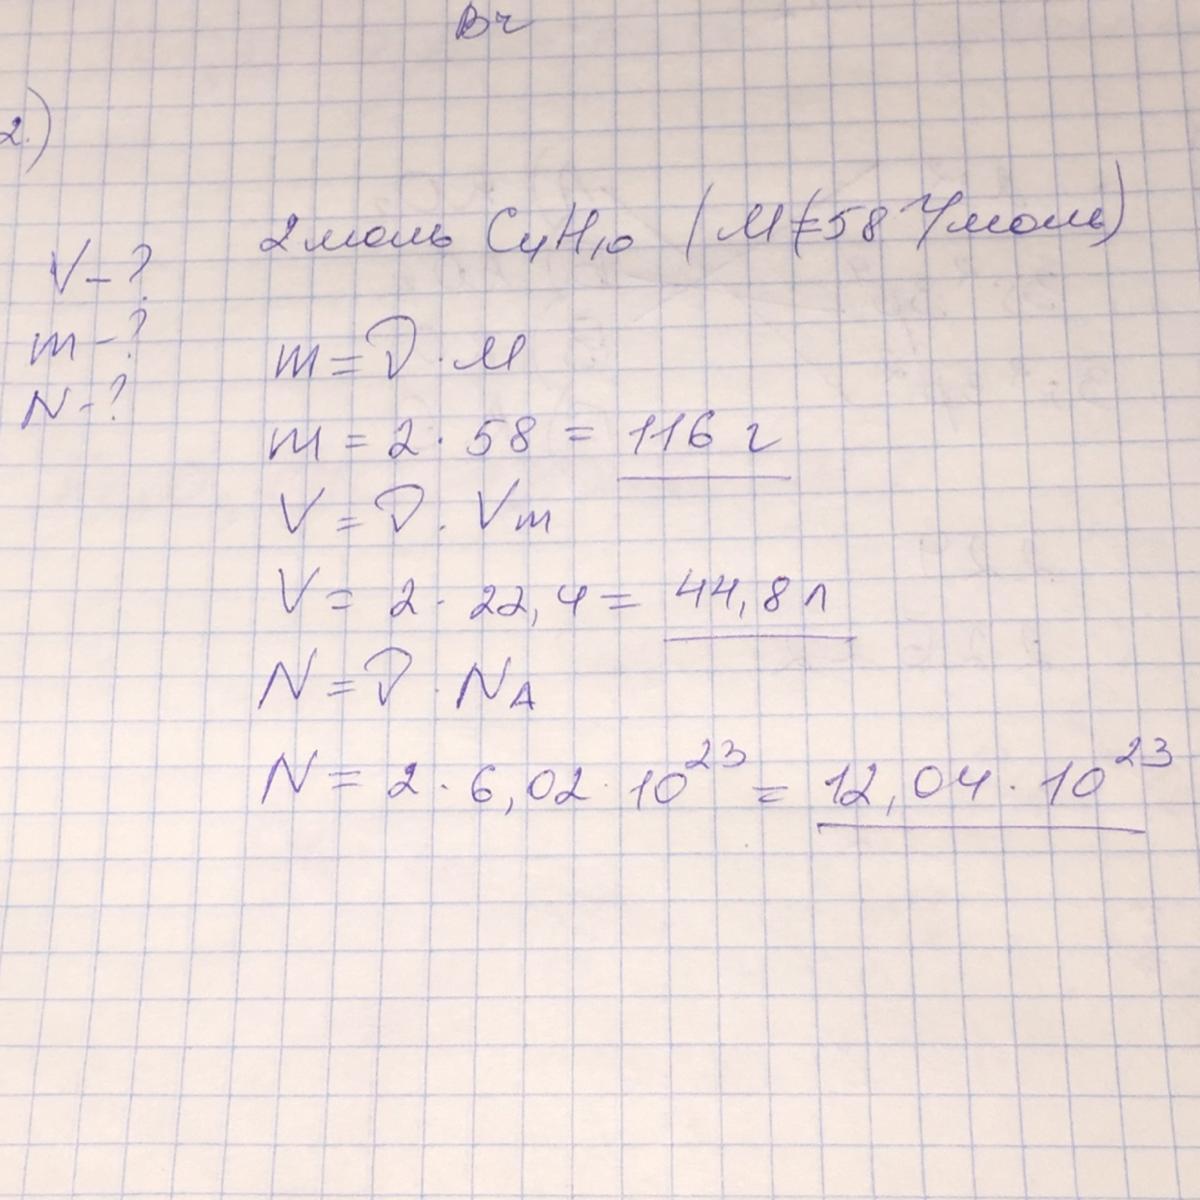 Br
2.)
2 моль C₄H₁₀ (M=58 г/моль)
V-?
m-?
N-?
m = ν · M
m = 2 · 58 = 116 г
V = ν · Vm
V = 2 · 22,4 = 44,8 л
N = ν · NA
N = 2 · 6,02 · 10²³ = 12,04 · 10²³